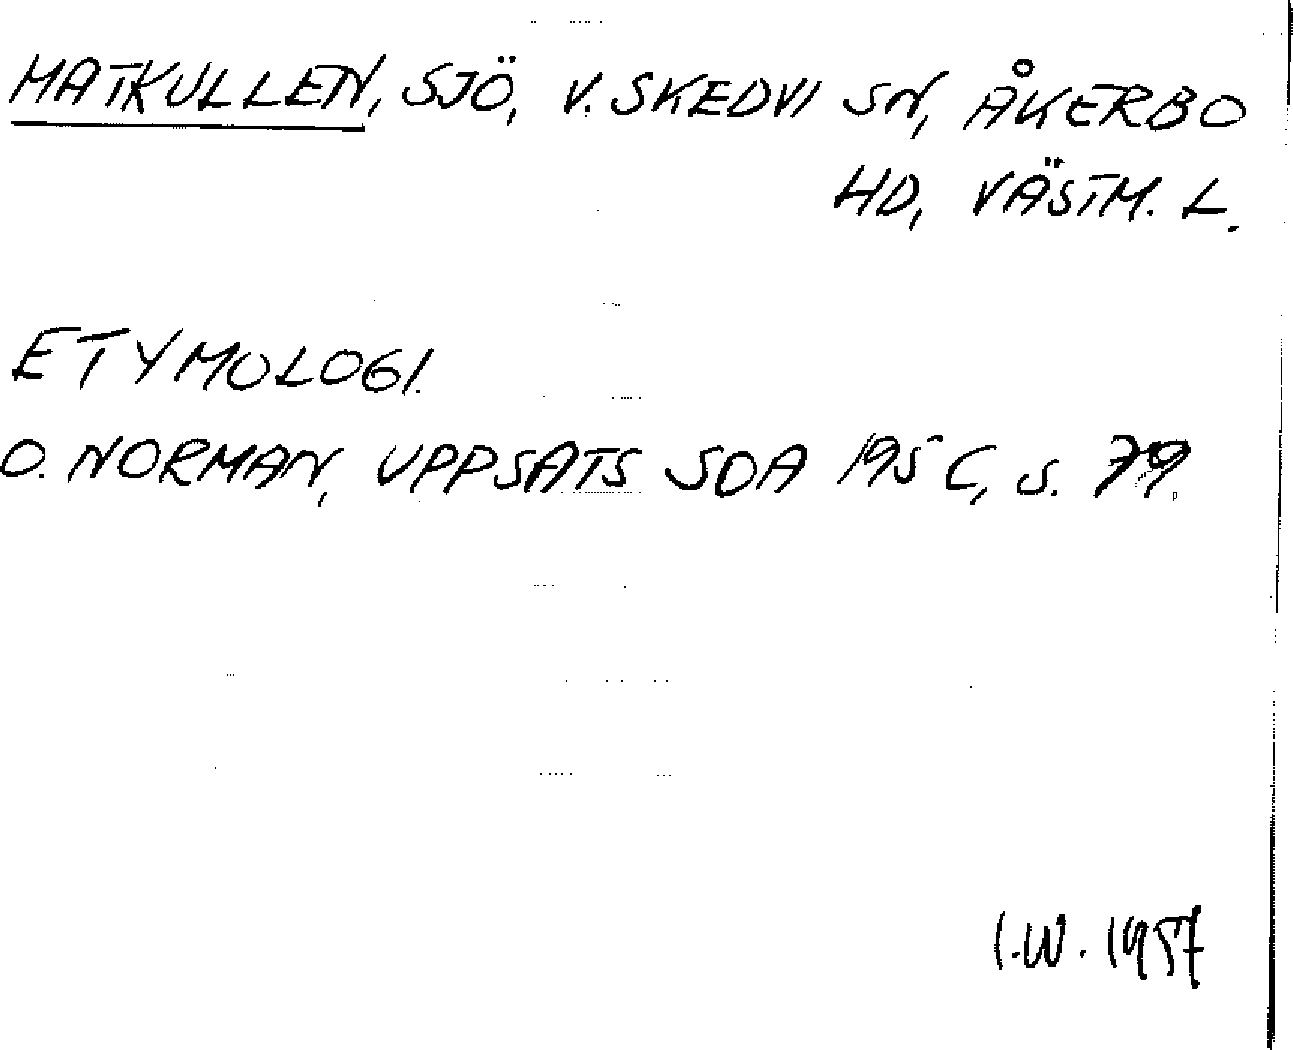 MATKULLEN, SJÖ, V. SKEDVI SN, ÅKERBO
HD, VÄSTM. L.
ETYMOLOGI.
O. NORMAN, UPPSATS SOA 195 C, s. 79.
I.W. 1957